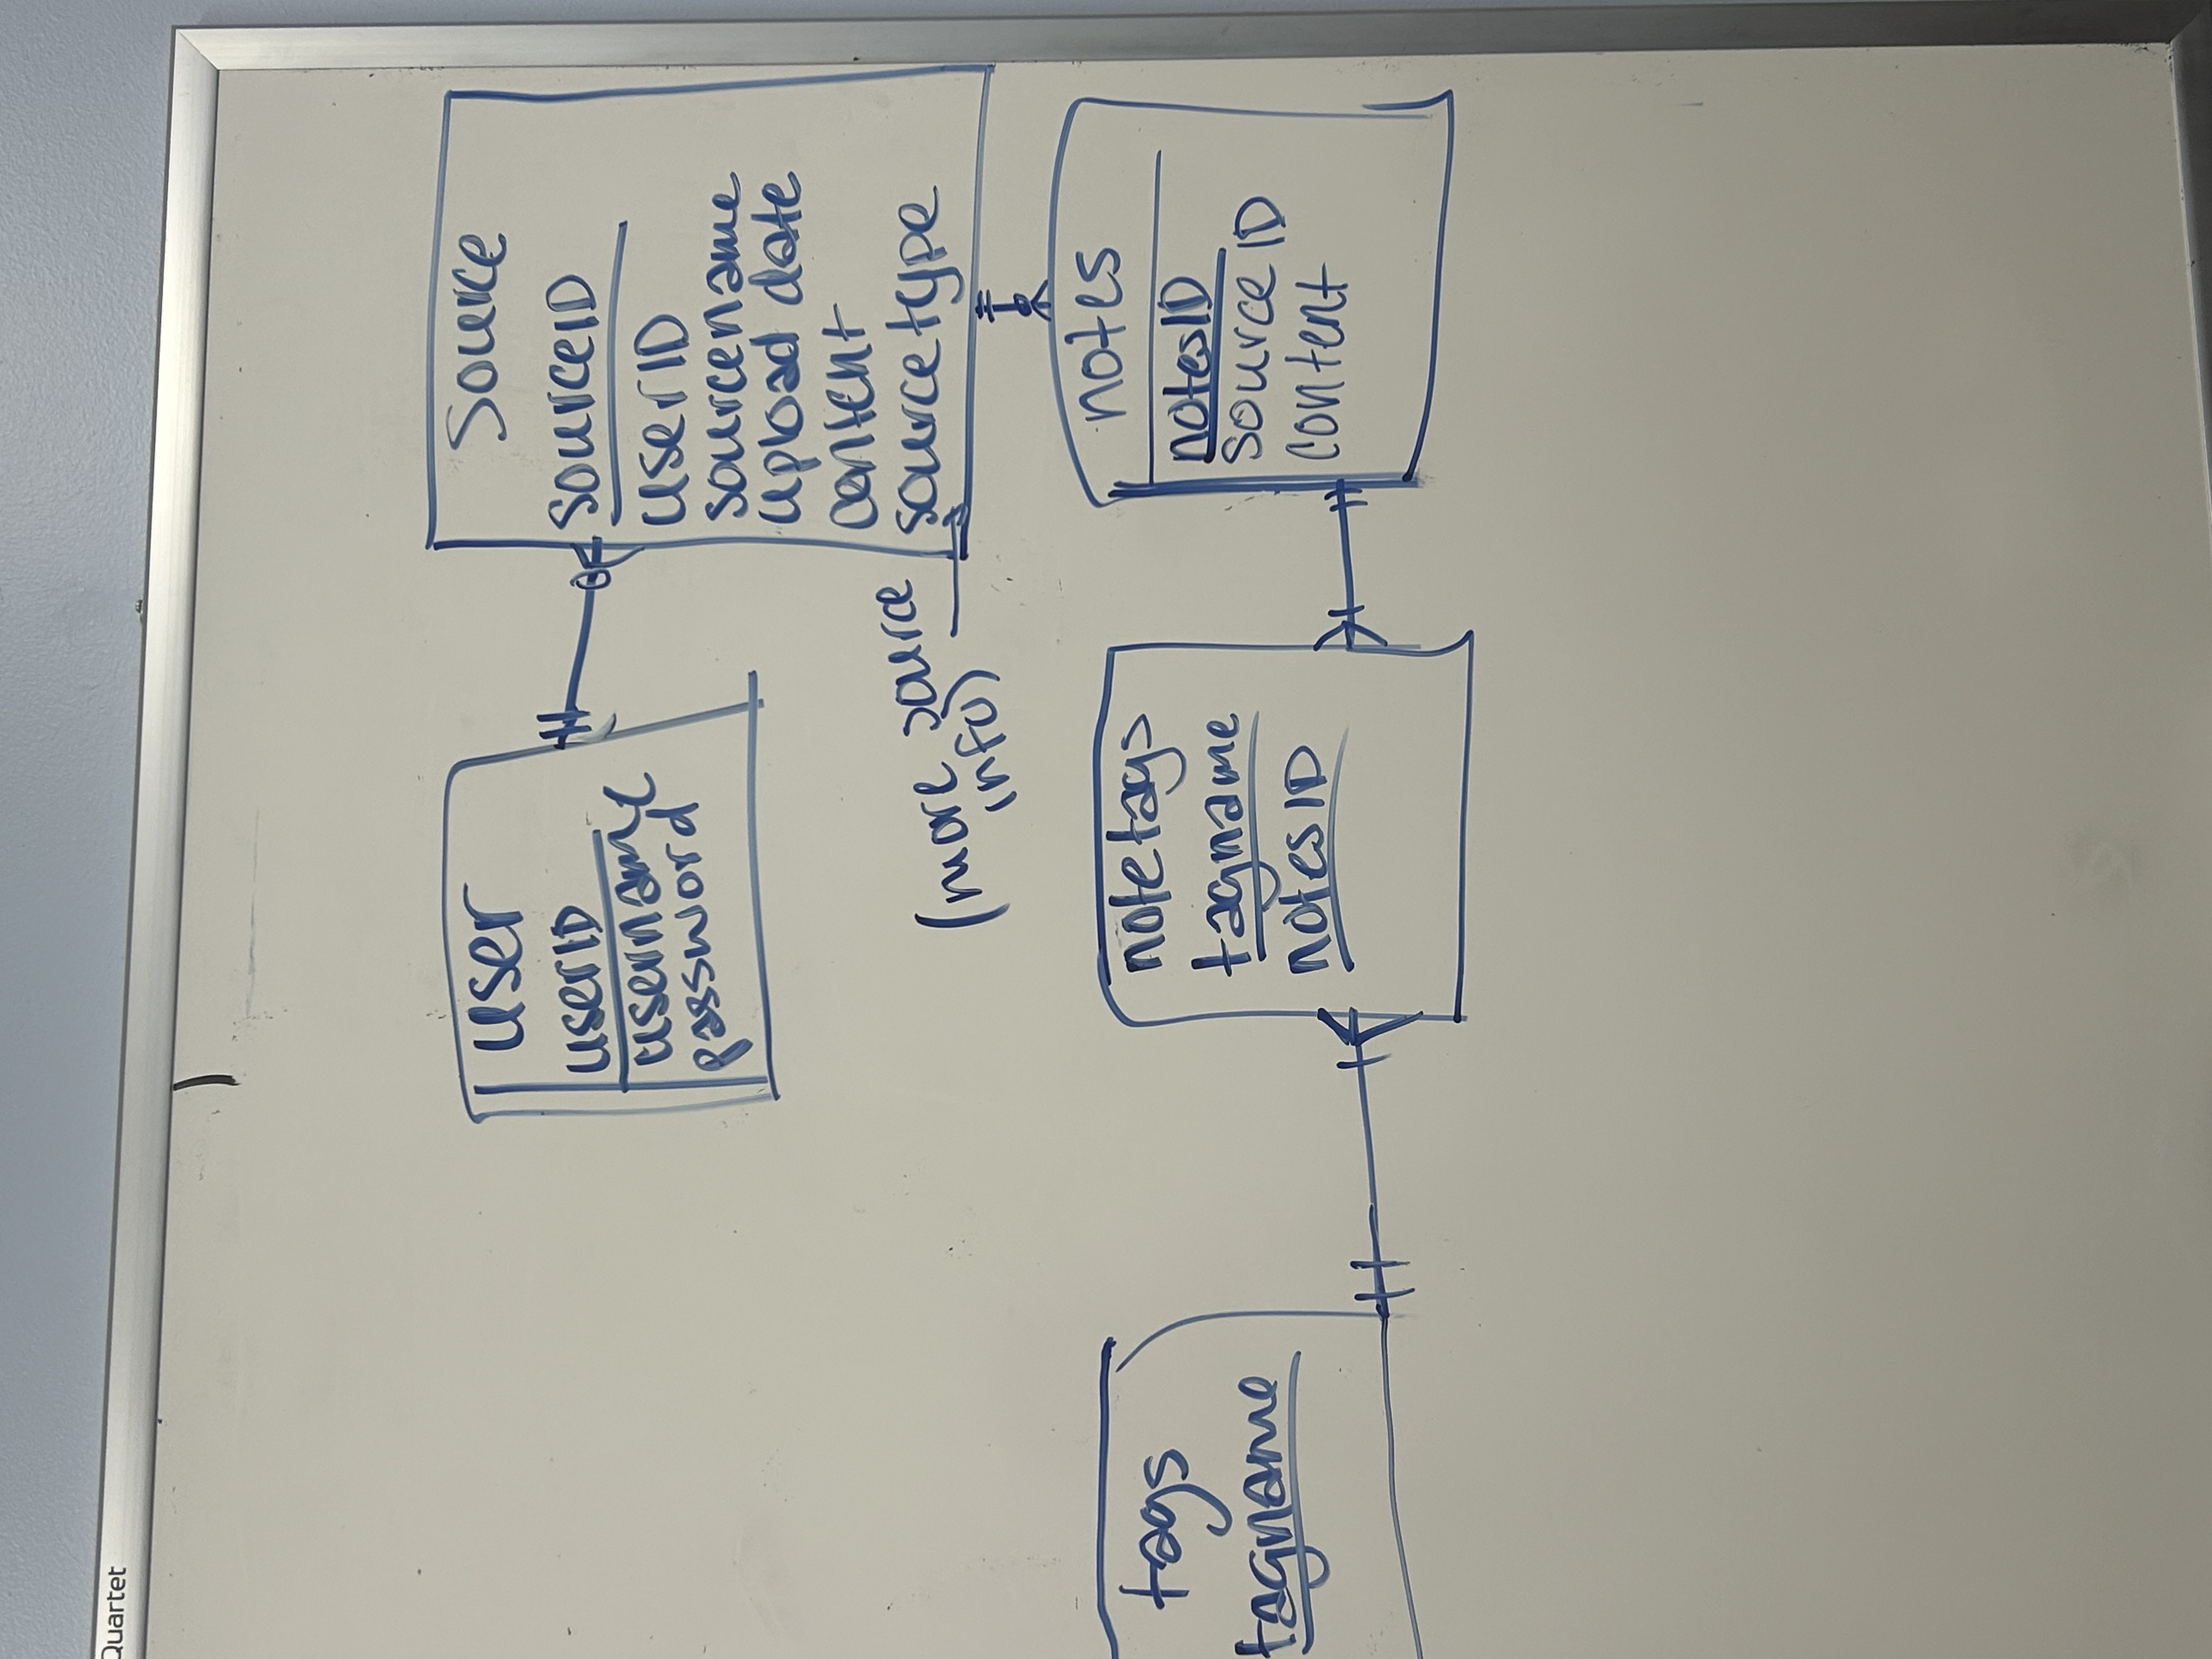 Quartet
user
userID
username
password
Source
sourceID
userID
sourcename
upload date
content
sourcetype
(more source
info)
tags
tagname
notetags
tagname
notesID
notes
notesID
sourceID
content